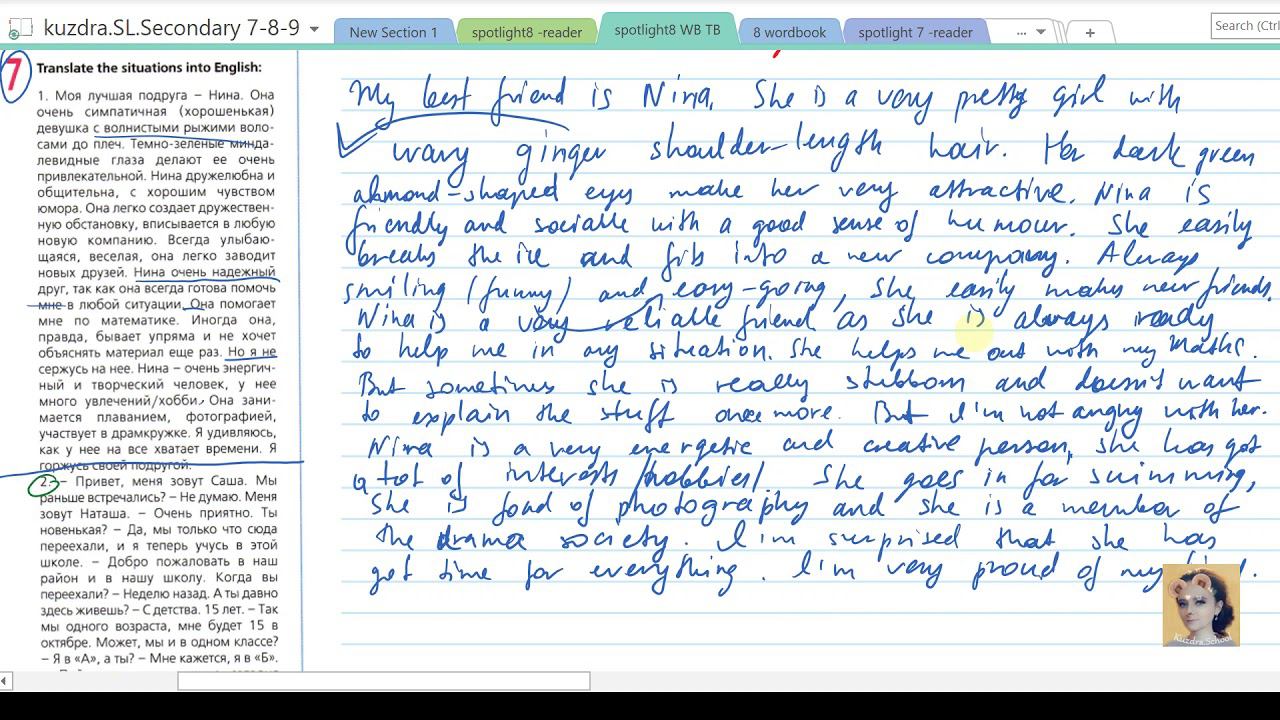 kuzdra.SL.Secondary 7-8-9
New Section 1
spotlight8 -reader
spotlight8 WB TB
8 wordbook
spotlight 7 -reader
...
+
Search (Ctrl
7
Translate the situations into English:
1. Моя лучшая подруга – Нина. Она
очень симпатичная (хорошенькая)
девушка с волнистыми рыжими воло-
сами до плеч. Темно-зеленые минда-
левидные глаза делают ее очень
привлекательной. Нина дружелюбна и
общительна, с хорошим чувством
юмора. Она легко создает дружествен-
ную обстановку, вписывается в любую
новую компанию. Всегда улыбаю-
щаяся, веселая, она легко заводит
новых друзей. Нина очень надежный
друг, так как она всегда готова помочь
мне в любой ситуации. Она помогает
мне по математике. Иногда она,
правда, бывает упряма и не хочет
объяснять материал еще раз. Но я не
сержусь на нее. Нина – очень энергич-
ный и творческий человек, у нее
много увлечений/хобби. Она зани-
мается плаванием, фотографией,
участвует в драмкружке. Я удивляюсь,
как у нее на все хватает времени. Я
горжусь своей подругой.
2. – Привет, меня зовут Саша. Мы
раньше встречались? – Не думаю. Меня
зовут Наташа. – Очень приятно. Ты
новенькая? – Да, мы только что сюда
переехали, и я теперь учусь в этой
школе. – Добро пожаловать в наш
район и в нашу школу. Когда вы
переехали? – Неделю назад. А ты давно
здесь живешь? – С детства. 15 лет. – Так
мы одного возраста, мне будет 15 в
октябре. Может, мы и в одном классе?
– Я в «А», а ты? – Мне кажется, я в «Б».
My best friend is Nina. She is a very pretty girl with
wavy ginger shoulder-length hair. Her dark green
almond-shaped eyes make her very attractive. Nina is
friendly and sociable with a good sense of humour. She easily
breaks the ice and fits into a new company. Always
smiling (funny) and easy-going, she easily makes new friends.
Nina is a very reliable friend as she is always ready
to help me in any situation. She helps me out with my Maths.
But sometimes she is really stubborn and doesn't want
to explain the stuff once more. But I'm not angry with her.
Nina is a very energetic and creative person, she has got
a lot of interests /hobbies/. She goes in for swimming,
she is fond of photography and she is a member of
the drama society. I'm surprised that she has
got time for everything. I'm very proud of my
Kuzdra.School